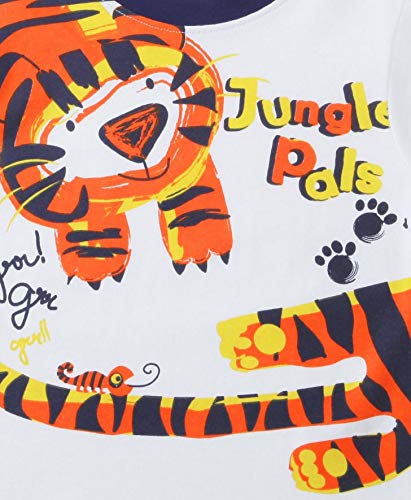 Jungle
Pals
grr!
grr
grrll